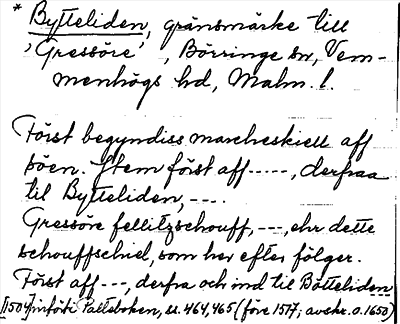 * Bytteliden, gränsmärke till
'Gressöre', Börringe sn, Vem-
menhögs hd, Malm. l.
Först begyndiss marcheskiell aff
þöen. Jtem först aff -----, derfraa
til Bytteliden, ---.
Gressöre fellitzschouff, ---, ehr dette
schouffschiel, som her efter fölger.
Först aff ---, derfra och ind til Bötteliden
[1504] införi Palteboken, s. 464, 465 (före 1517; avskr. o. 1650)